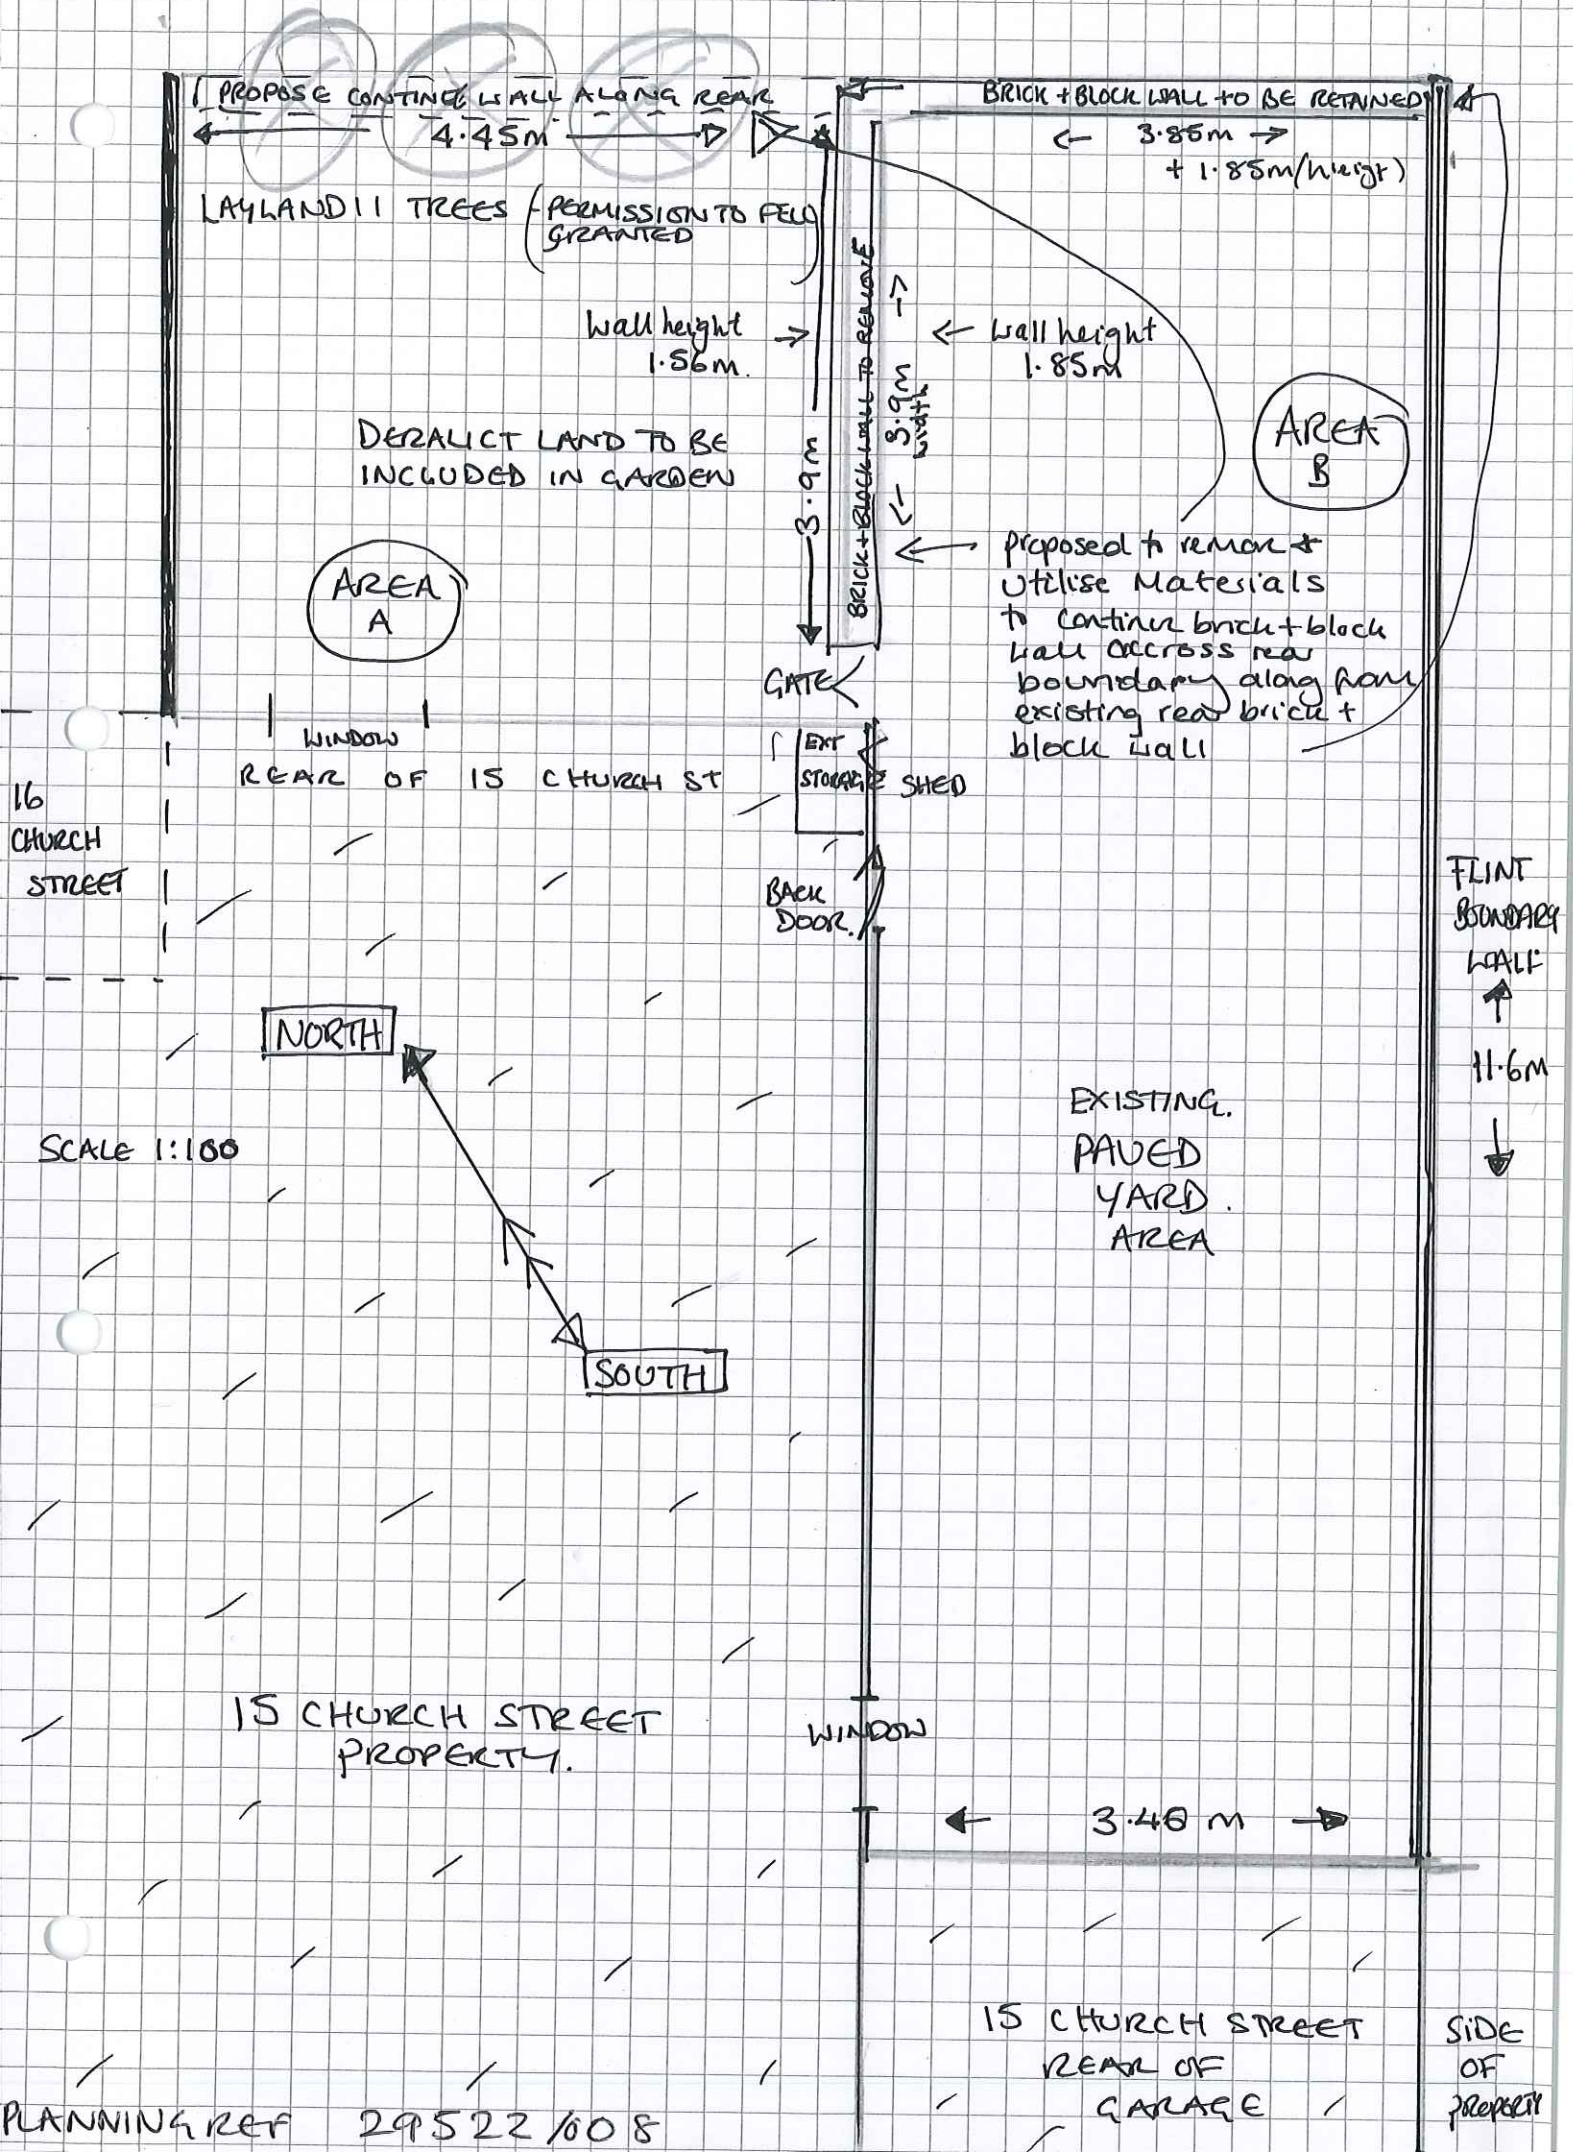 PROPOSE CONTINUE WALL ALONG REAR
4.45m
BRICK + BLOCK WALL TO BE RETAINED
3.85m
+ 1.85m (heigt)
LAYLANDII TREES (PERMISSION TO FELL
GRANTED)
Wall height
1.56m.
BRICK + BLOCK WALL TO REMOVE
3.9m
width
3.9m
Wall height
1.85m
AREA
B
DERALICT LAND TO BE
INCLUDED IN GARDEN
AREA
A
proposed to remove &
Utilise Materials
to continue brick + block
wall accross rear
boundary along from
existing rear brick +
block wall
GATE
WINDOW
REAR OF 15 CHURCH ST
EXT
STORAGE SHED
16
CHURCH
STREET
BACK
DOOR.
FLINT
BOUNDARY
WALL
11.6M
NORTH
SCALE 1:100
SOUTH
EXISTING.
PAVED
YARD.
AREA
15 CHURCH STREET
PROPERTY.
WINDOW
3.40 m
15 CHURCH STREET
REAR OF
GARAGE
SIDE
OF
PROPERTY
PLANNING REF 29522/008